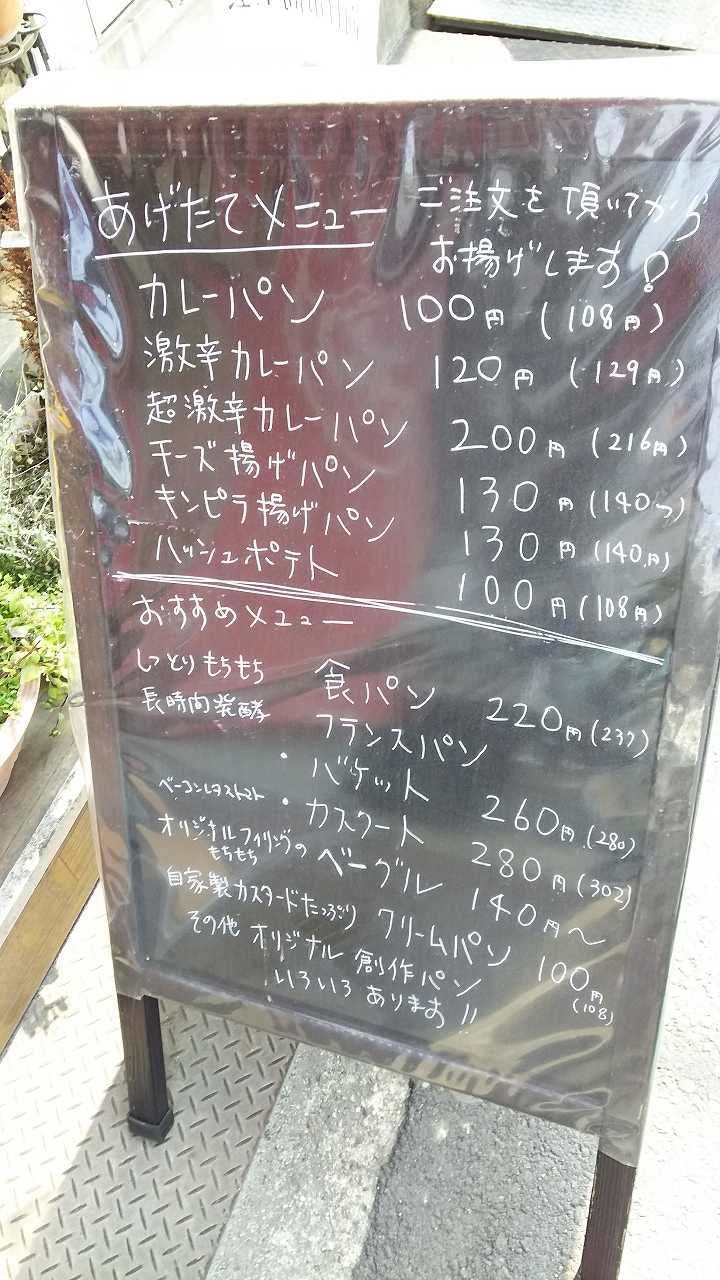 あげたてメニュー ご注文を頂いてから
お揚げします!
カレーパン 100円 (108円)
激辛カレーパン 120円 (129円)
超激辛カレーパン 200円 (216円)
チーズ揚げパン 130円 (140円)
キンピラ揚げパン 130円 (140円)
ハッシュポテト 100円 (108円)
おすすめメニュー
しっとりもちもち 食パン 220円 (237)
長時間発酵 フランスパン
・バゲット 260円 (280)
ベーコンレタストマト ・カスクート 280円 (302)
オリジナルフィリングの
もちもち ベーグル 140円〜
自家製カスタードたっぷり クリームパン 100円
(108)
その他 オリジナル 創作パン
いろいろ あります!!